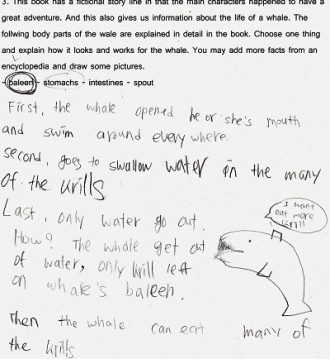 3. This book has a fictional story line in that the main characters happened to have a
great adventure. And this also gives us information about the life of a whale. The
follwing body parts of the wale are explained in detail in the book. Choose one thing
and explain how it looks and works for the whale. You may add more facts from an
encyclopedia and draw some pictures.
- baleen - stomachs - intestines - spout
First, the whale opened he or she's mouth
and swim around every where.
second, goes to swallow water in the many
of the krills
Last, only water go out.
How? The whale get out
of water, only krill left
on whale's baleen.
Then the whale can eat many of
the krills
I want
eat more
krill